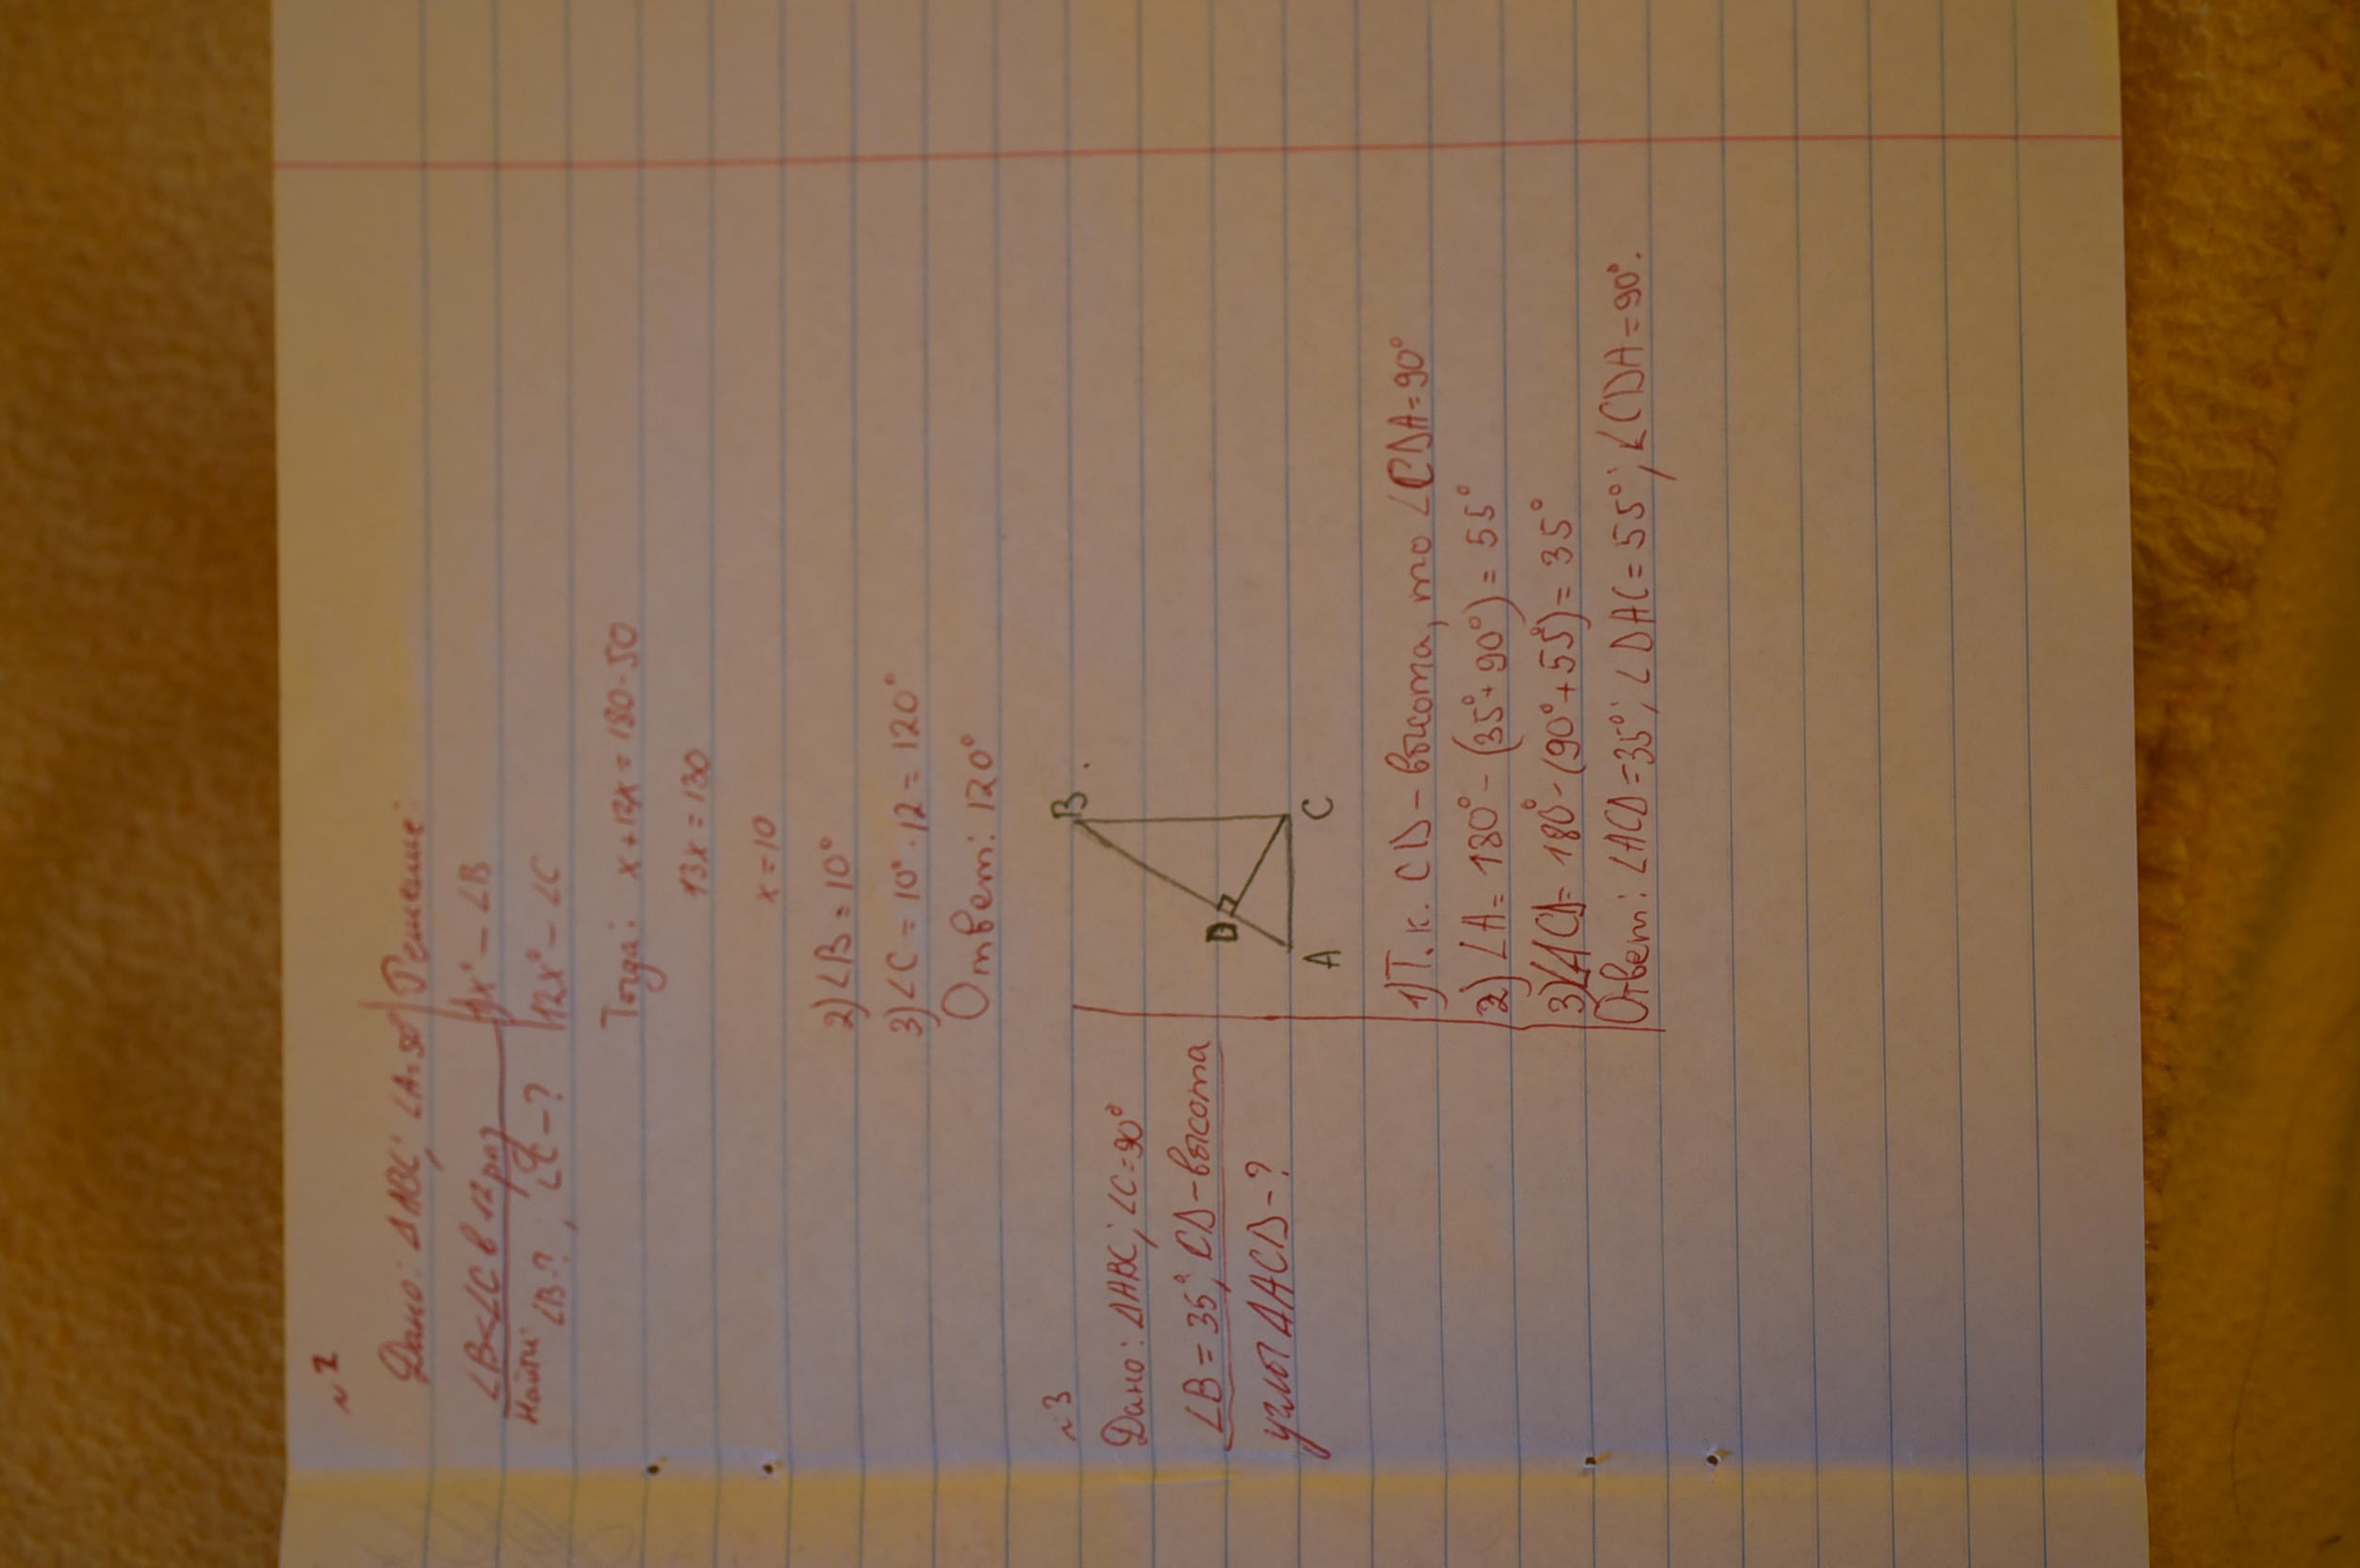 №2
Дано: ΔABC; ∠A=50° Решение:
∠B<∠C в 12 раз 1) x° – ∠B
Найти: ∠B-?; ∠C-? 12x° – ∠C
Тогда: x+12x = 180-50
13x = 130
x = 10
2) ∠B = 10°
3) ∠C = 10° · 12 = 120°
Ответ: 120°
№3
Дано: ΔABC; ∠C=90°
∠B = 35°; CD – высота
углы ΔACD-?
B
D
A
C
1) Т.к. CD – высота, то ∠CDA=90°
2) ∠A = 180° – (35°+90°) = 55°
3) ∠ACD = 180° – (90°+55°) = 35°
Ответ: ∠ACD=35°; ∠DAC=55°; ∠CDA=90°.